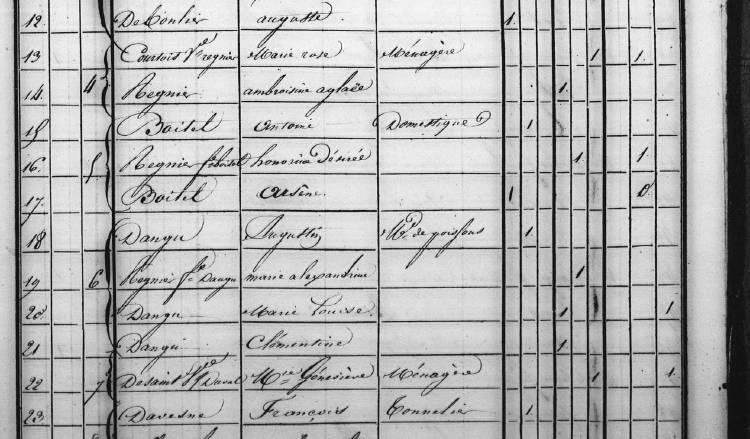 12. DeConlier auguste. 1.
13 Courtois Vᵉ regnier Marie rose Ménagère 1 1.
4 14. Regnier ambroisine aglaée 1.
15 Boitel antoine Domestique 1
5 16. Regnier fᵉ Boitel honorine Désirée 1 1.
17. Boitel arsène. 1
18 Dangu Augustin Mᵈ de poissons 1
6 19 Regnier fᵉ Dangu marie alexandrine 1
20. Dangu Marie Louise. 1 1
21 Dangu Clémentine 1
7 22 Desaint Vᵉ Mᶦᵉ Géneviève Ménagère 1 1.
23 Davesne François Tonnelier 1